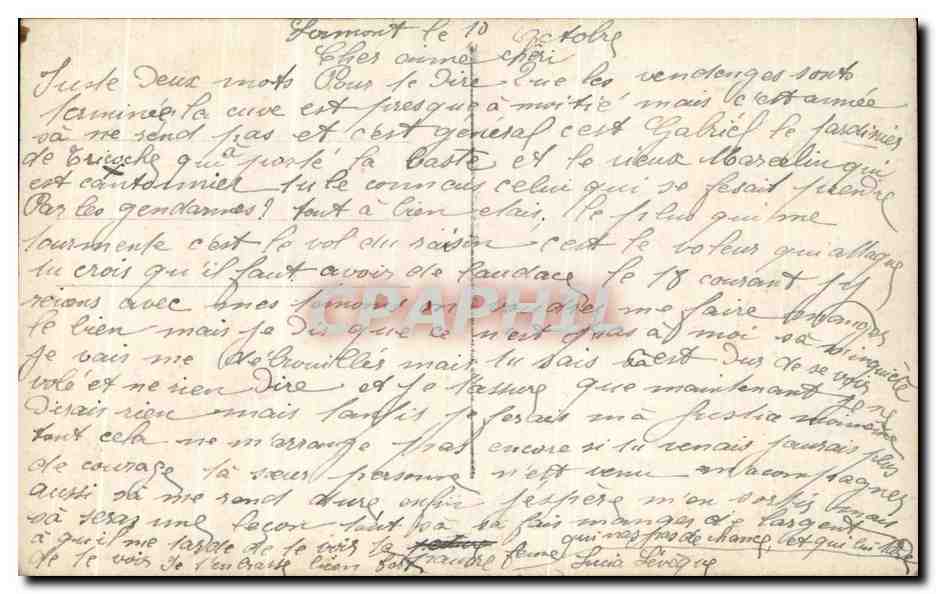 Lormont le 10 Octobre
Cher aimé chéri
Juste deux mots Pour te dire Que les vendenges sonts
terminée la cuve est presque a moitié mais c'est année
sà ne rend pas et c'est général c'est Gabriél le jardinier
de Tricoche qui à porté la baste et le vieux Marcelin qui
est cantonnier tu le connais celui qui se fesait prendre
Par les gendarmes? tout à bien etais. le plus qui me
tourmente c'est le vol du raisin c'est le voleur qui attaque
tu crois qu'il faut avoir de l'audace le 18 courant j'y
reviens avec mes témoins me faire manger
le bien mais je dis que ce n'est pas à moi sà m'inquiète
je vais me débrouillés mais tu sais c'est dur de se voir
volé et ne rien dire et je t'assure que maintenant je ne
dirais rien mais tanpis je ferais mà Justice moi même
tout cela ne m'arrange pas encore si tu venais j'aurais plus
de courage tà sœur personne n'est venu m'acompagner
aussi sà me rend dure enfin j'espère m'en sortir mais
sà seras une leçon tout sà sà fais manger de l'argent
à qu'il me tarde de te voir ta pauvre femme qui nas pas de chance et qui lui tarde
de te voir Je t'embrasse bien fort Lucia Levêque
CPAPHIL